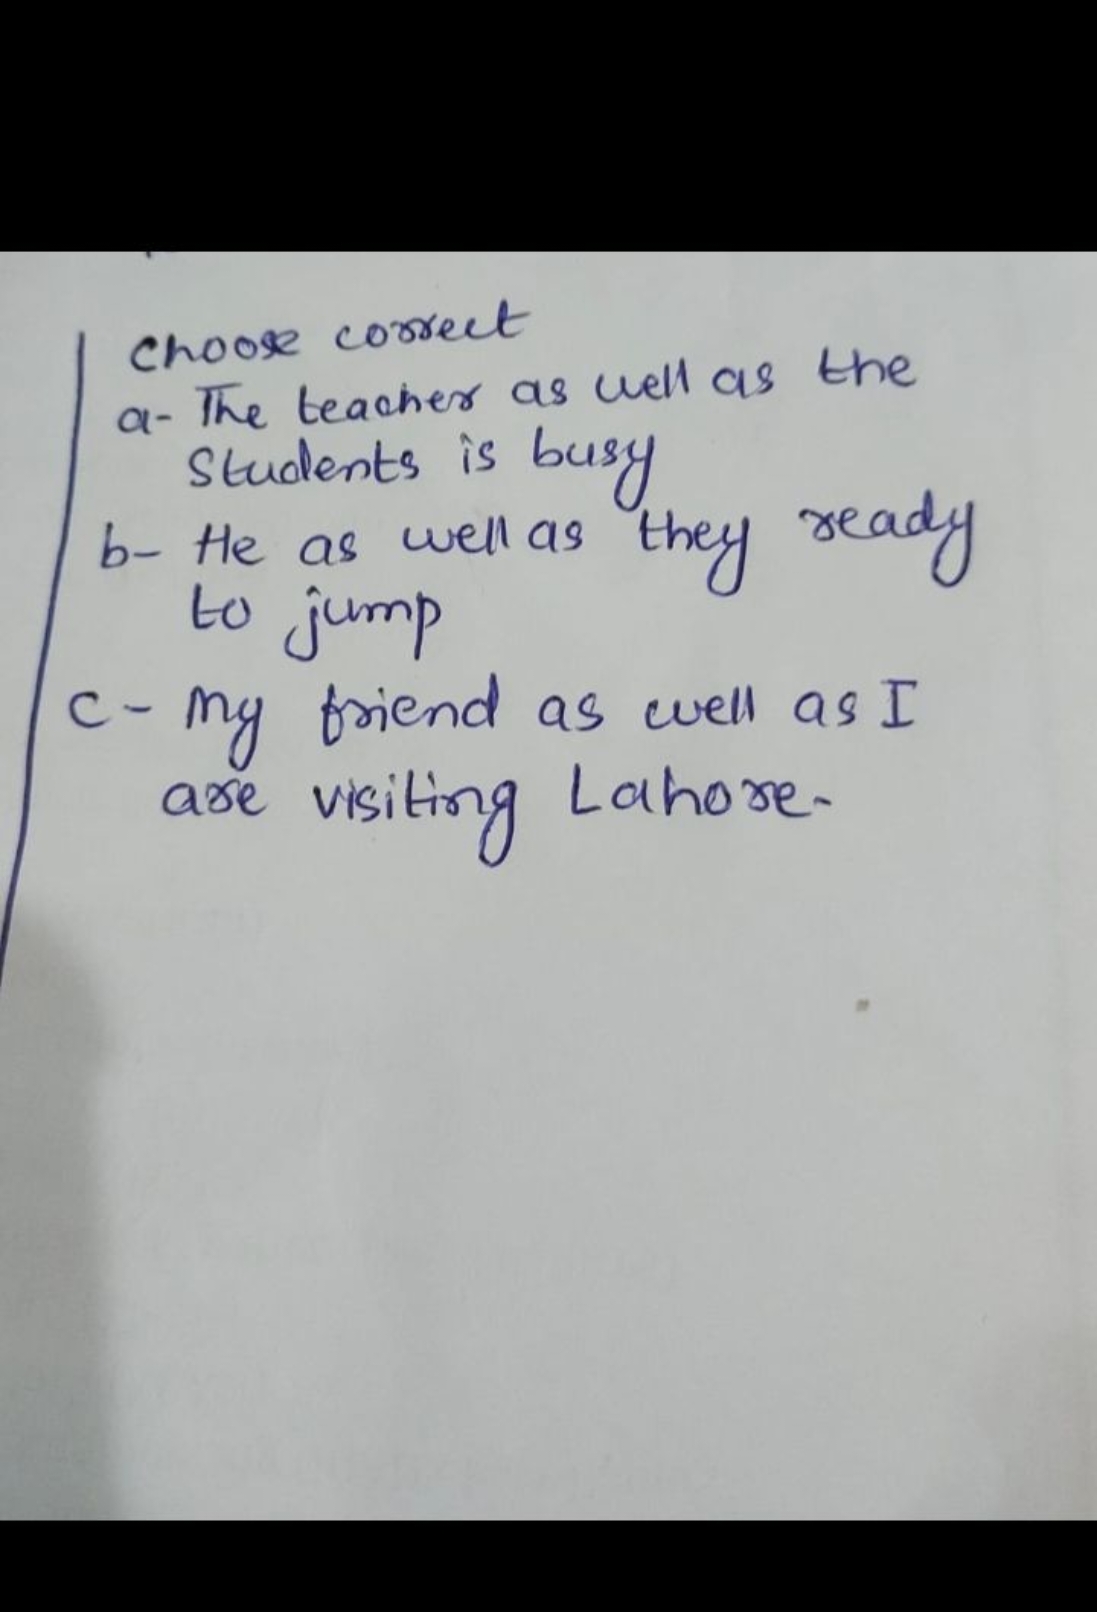 Choose correct
a- The teacher as well as the
Students is busy
b- He as well as they ready
to jump
c- My friend as well as I
are visiting Lahore.